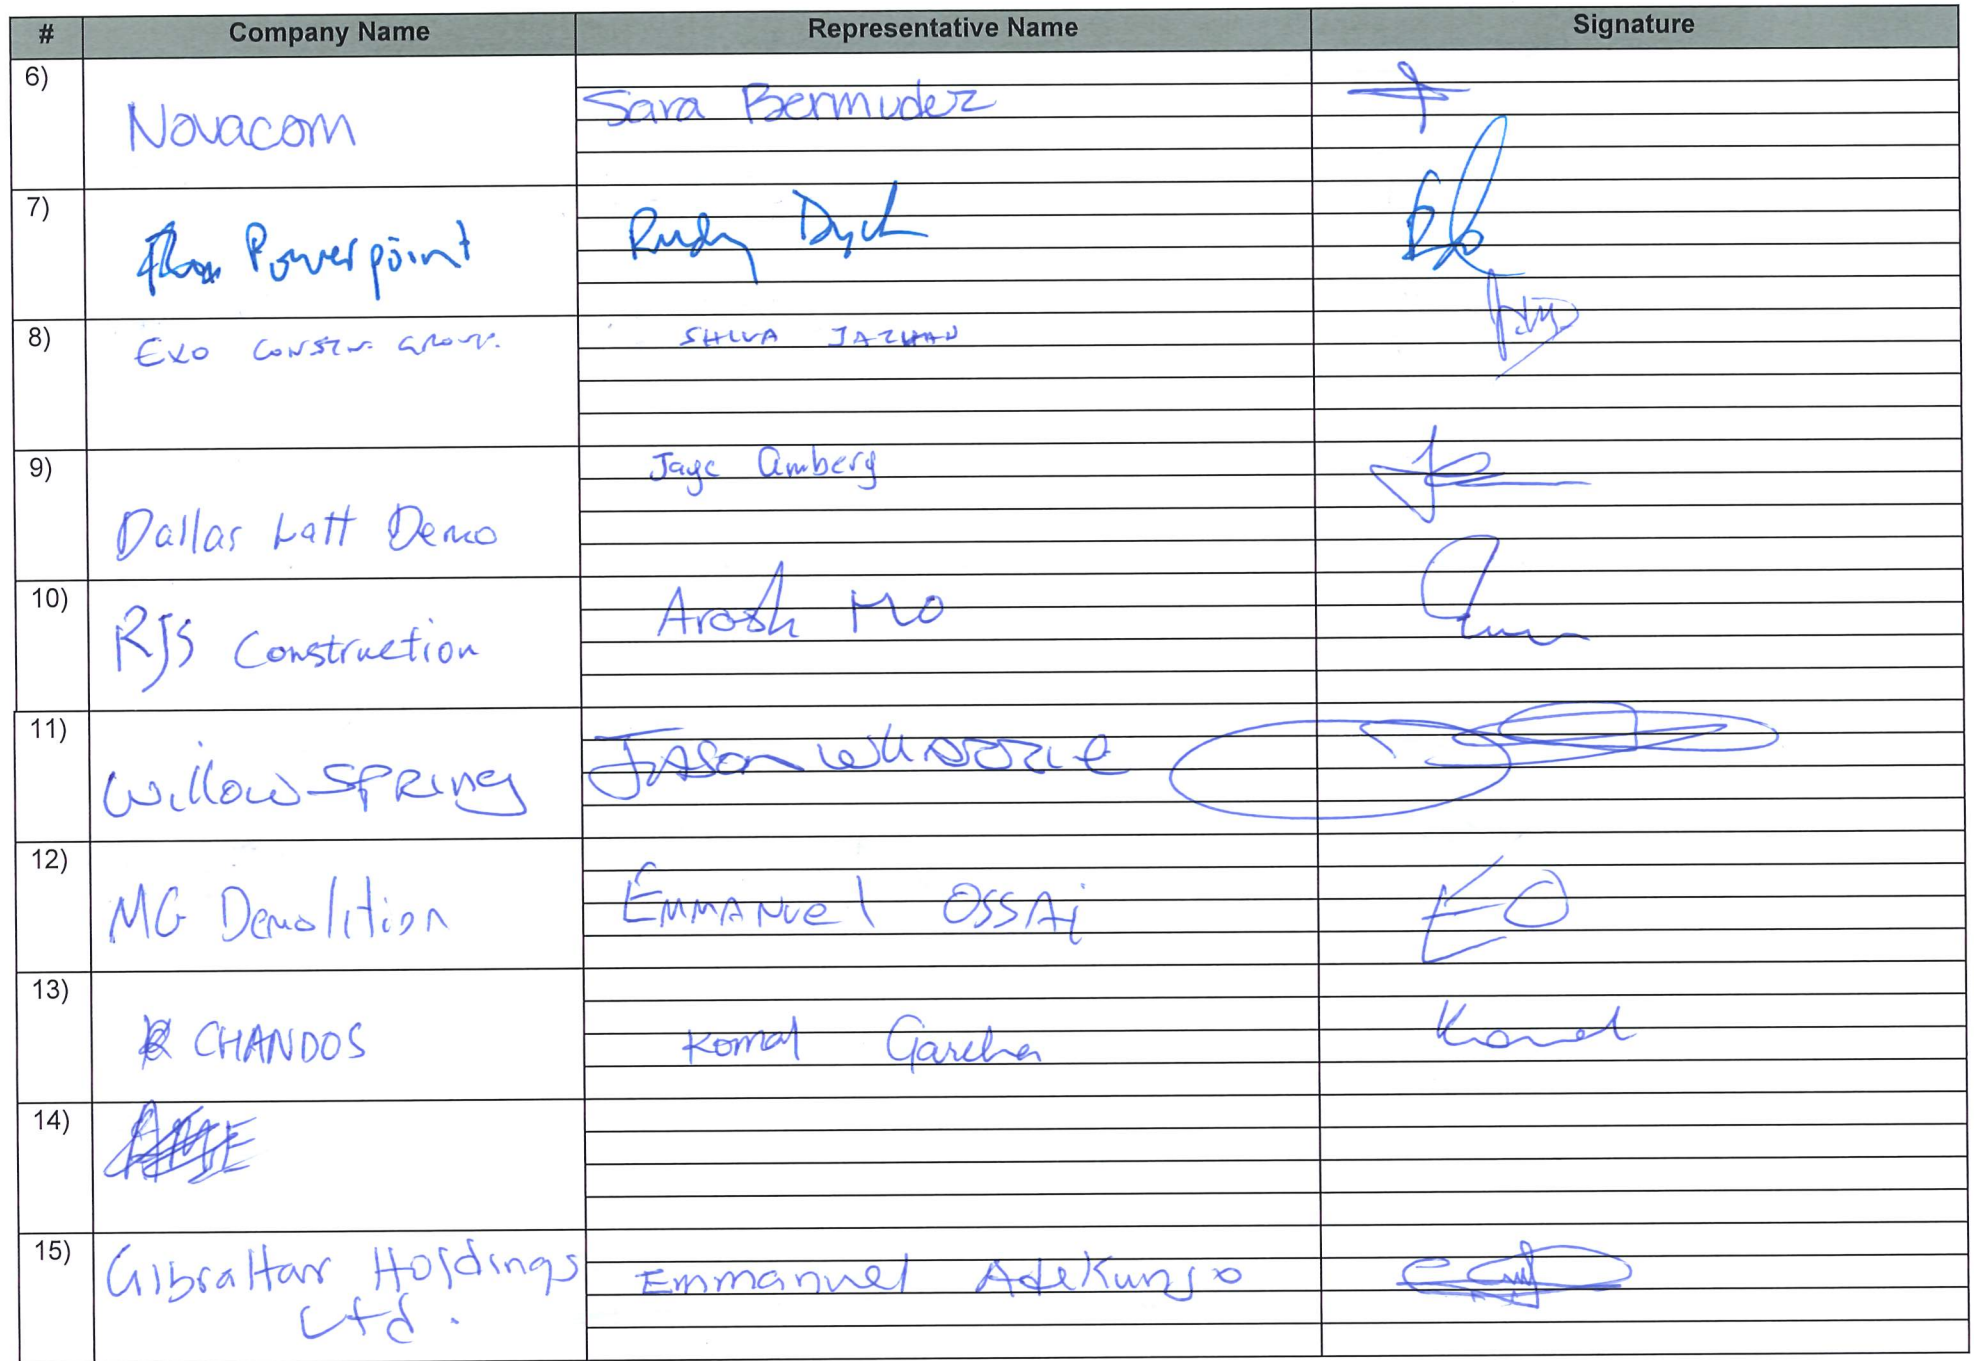 # Company Name Representative Name Signature
6) Novacom Sara Bermudez
7) Powerpoint Rudy Dyck
8) Exo Constn. Group. SHIVA
9) Dallas Watt Demo Jayc Amberg
10) RJS Construction Arash Mo
11) Willow SPRing JASON
12) MG Demolition EMMANUel OSSAi EO
13) CHANDOS Komal Garcha Komal
14)
15) Gibraltar Holdings Emmanuel Adekunjo
Ltd.